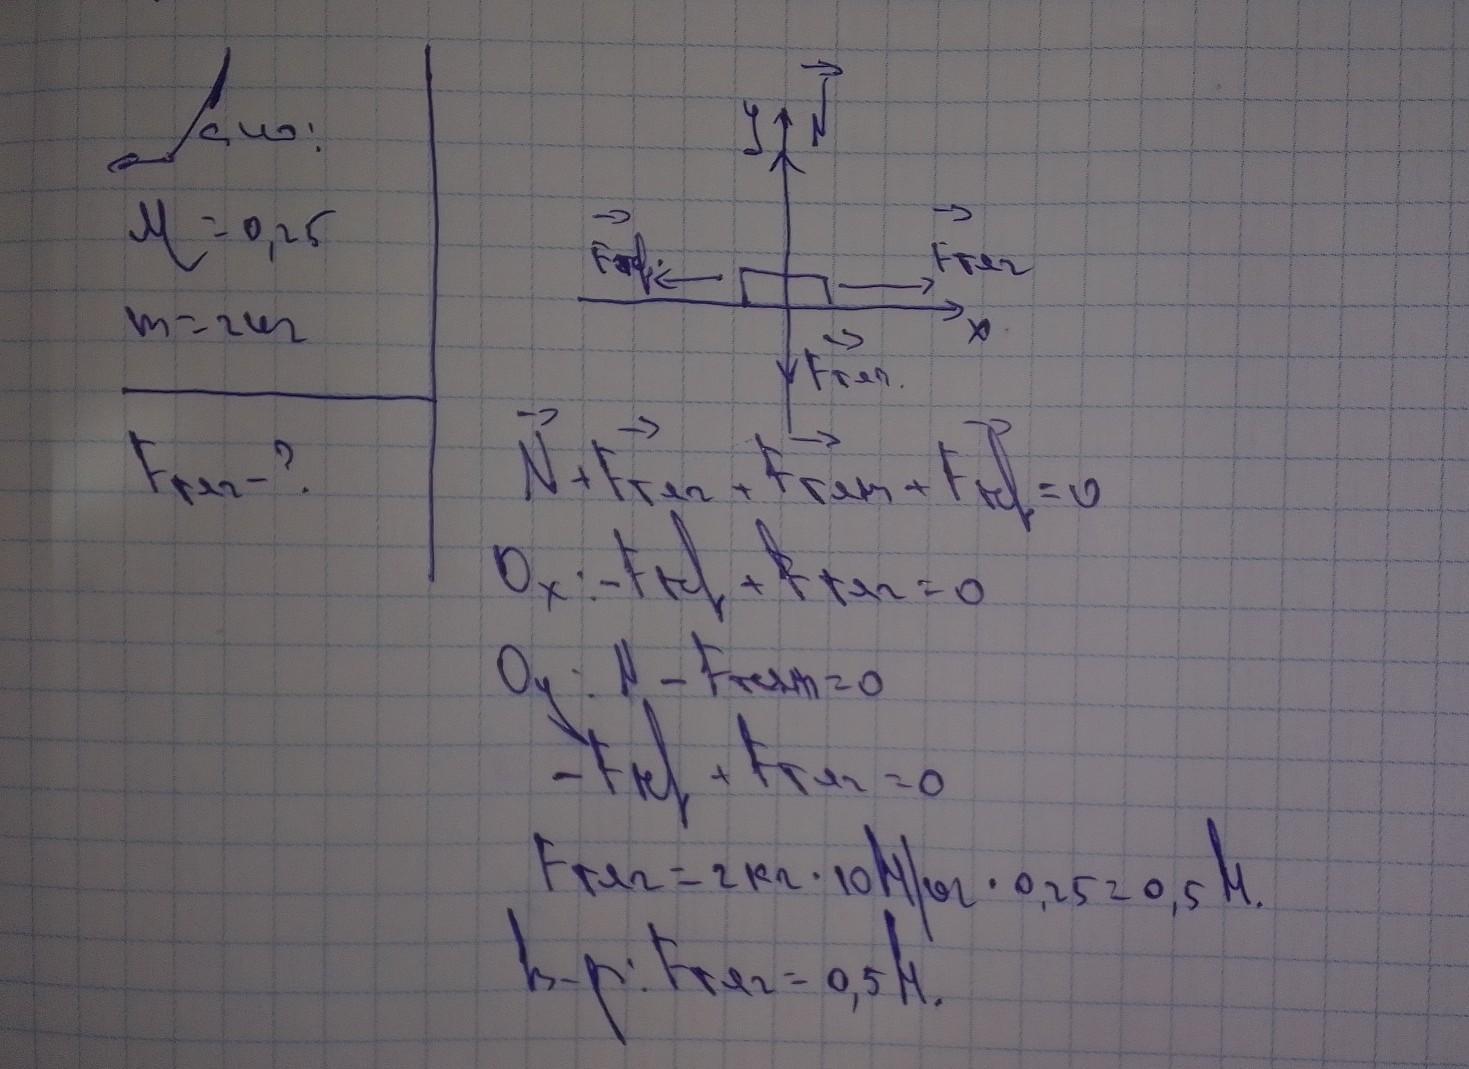 Дано:
μ = 0,25
m = 2 кг
Fтяг - ?
y
N
Fтяг
x
N + Fтяг + Fтяж + Fтр = 0
Ox: -Fтр + Fтяг = 0
Oy: N - Fтяж = 0
-Fтр + Fтяг = 0
Fтяг = 2 кг · 10 Н/кг · 0,25 = 0,5 Н.
В-дь: Fтяг = 0,5 Н.